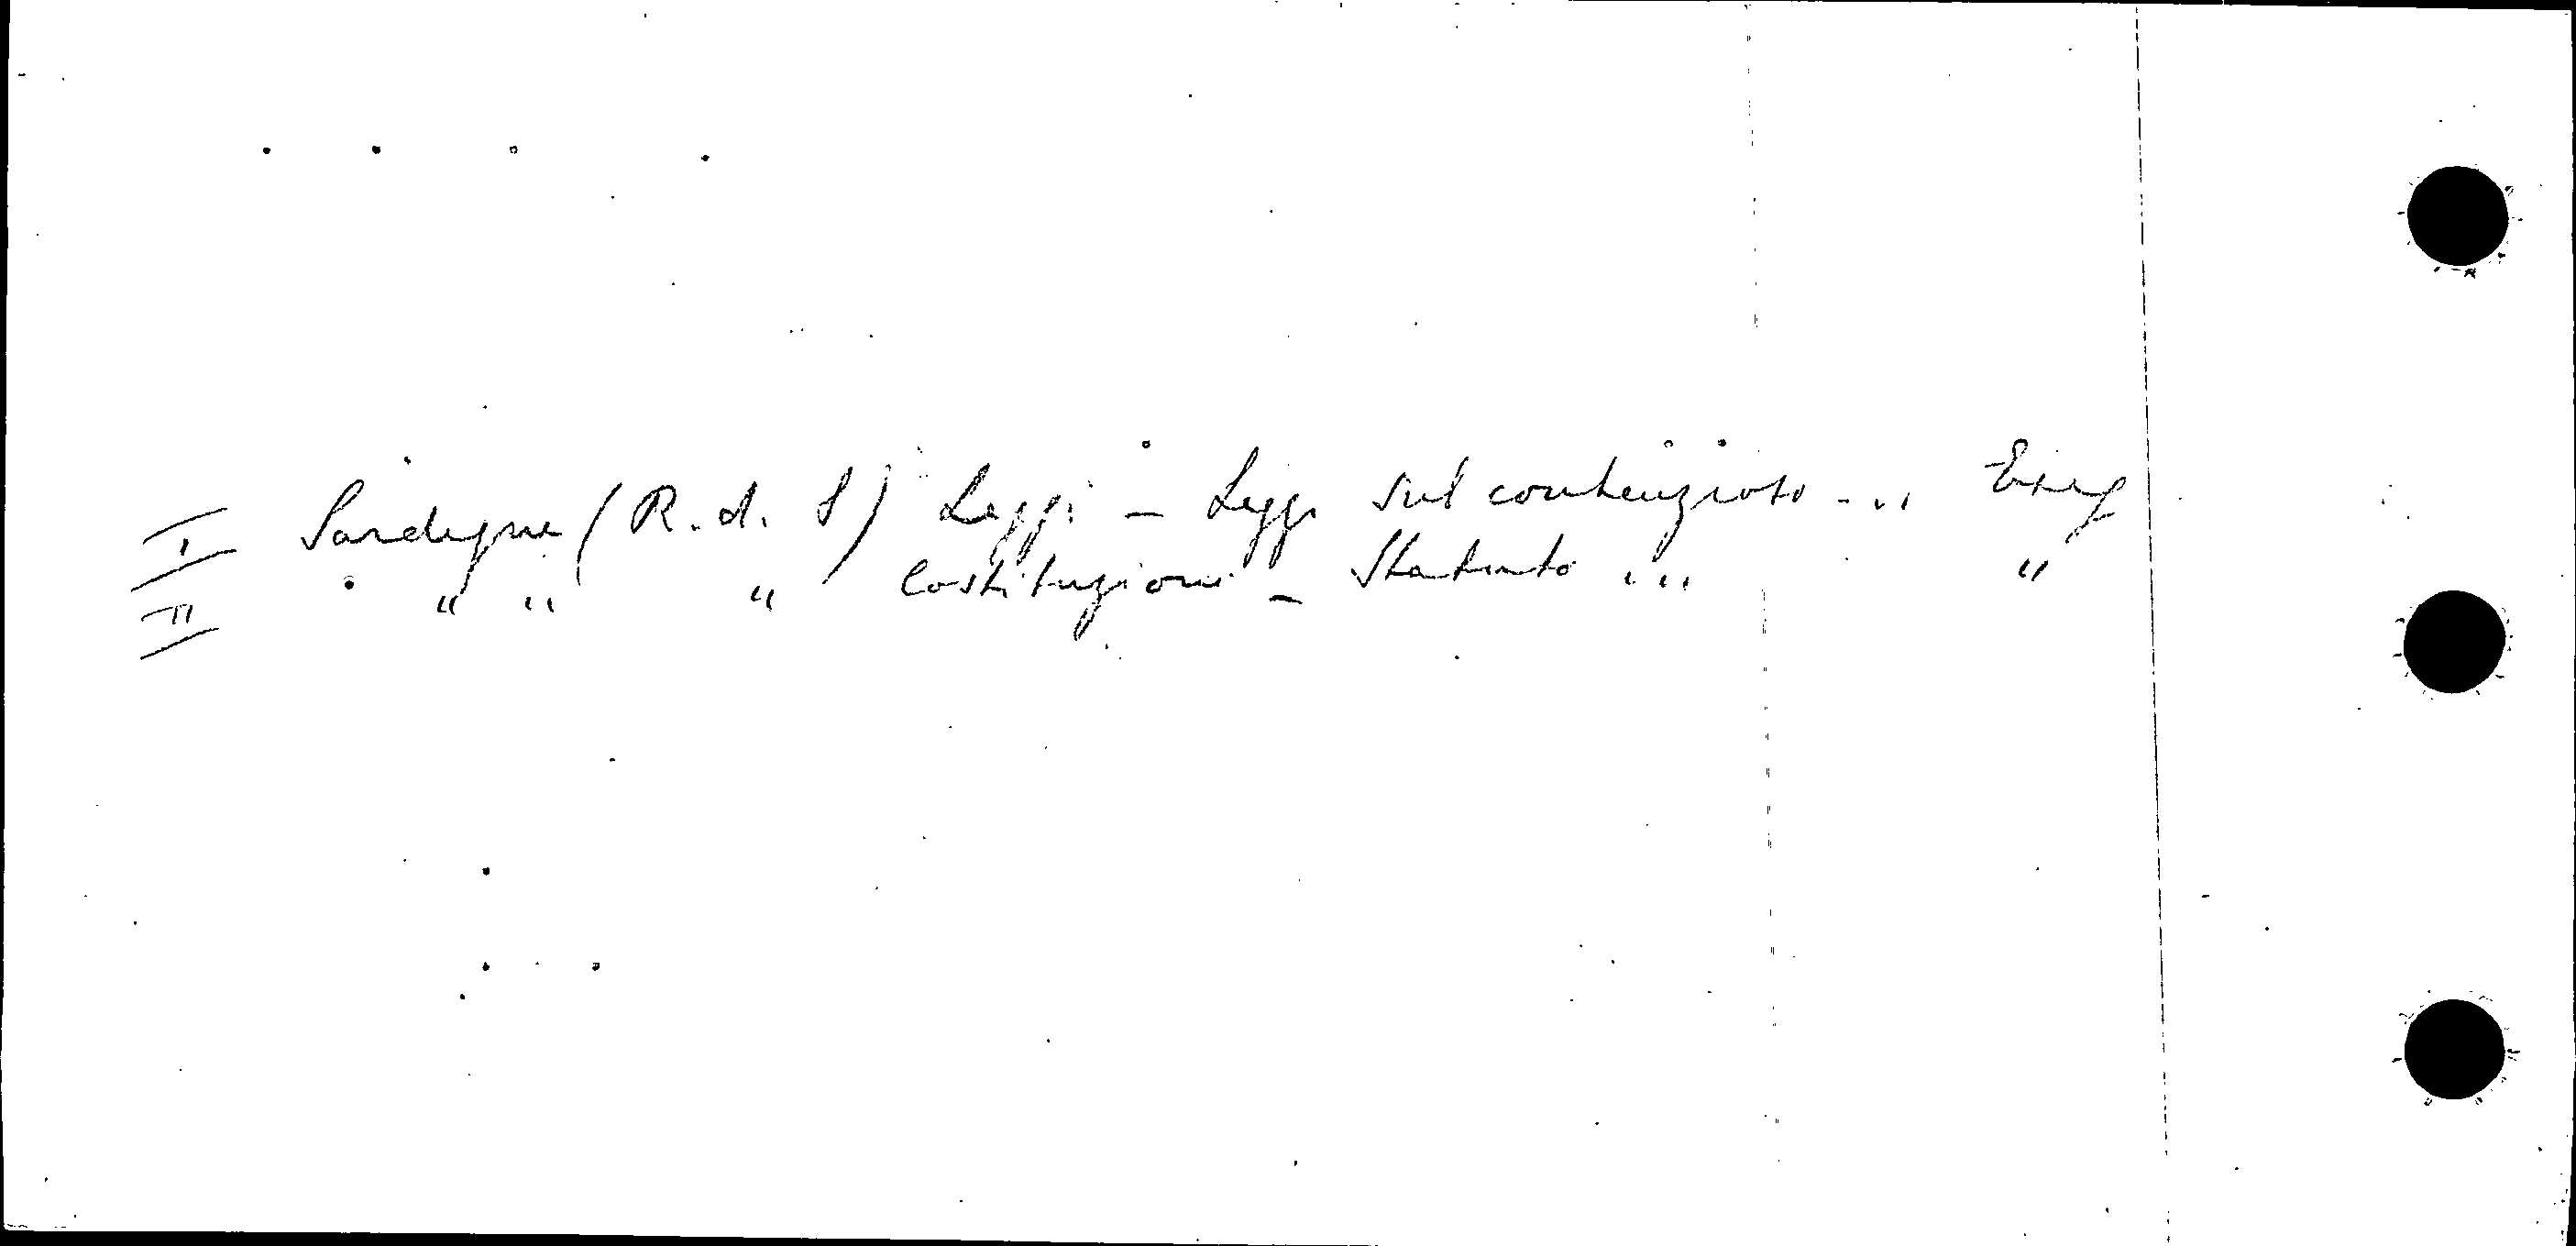 I Sardegna (R. d. S) Leggi - Legge sul contenzioso ...
II " " " Costituzioni - Statuto ... "